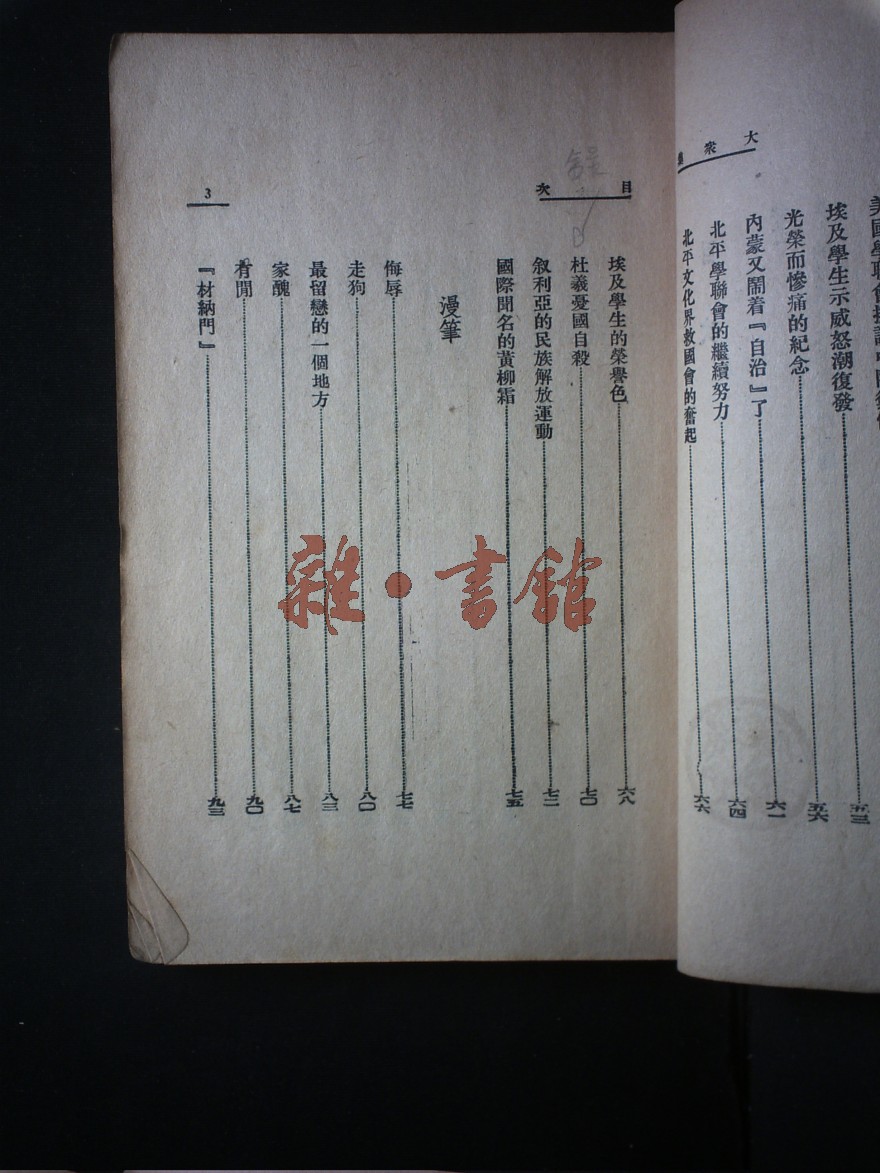 大衆
埃及學生示威怒潮復發……五三
光榮而慘痛的紀念……五六
內蒙又鬧着『自治』了……六一
北平學聯會的繼續努力……六四
北平文化界救國會的奮起……六六
目次
埃及學生的榮譽色……六八
杜羲憂國自殺……七〇
叙利亞的民族解放運動……七二
國際聞名的黃柳霜……七五
漫筆
侮辱……七七
走狗……八〇
最留戀的一個地方……八三
家醜……八七
有閒……九〇
『材納門』……九三
3
雜·書館